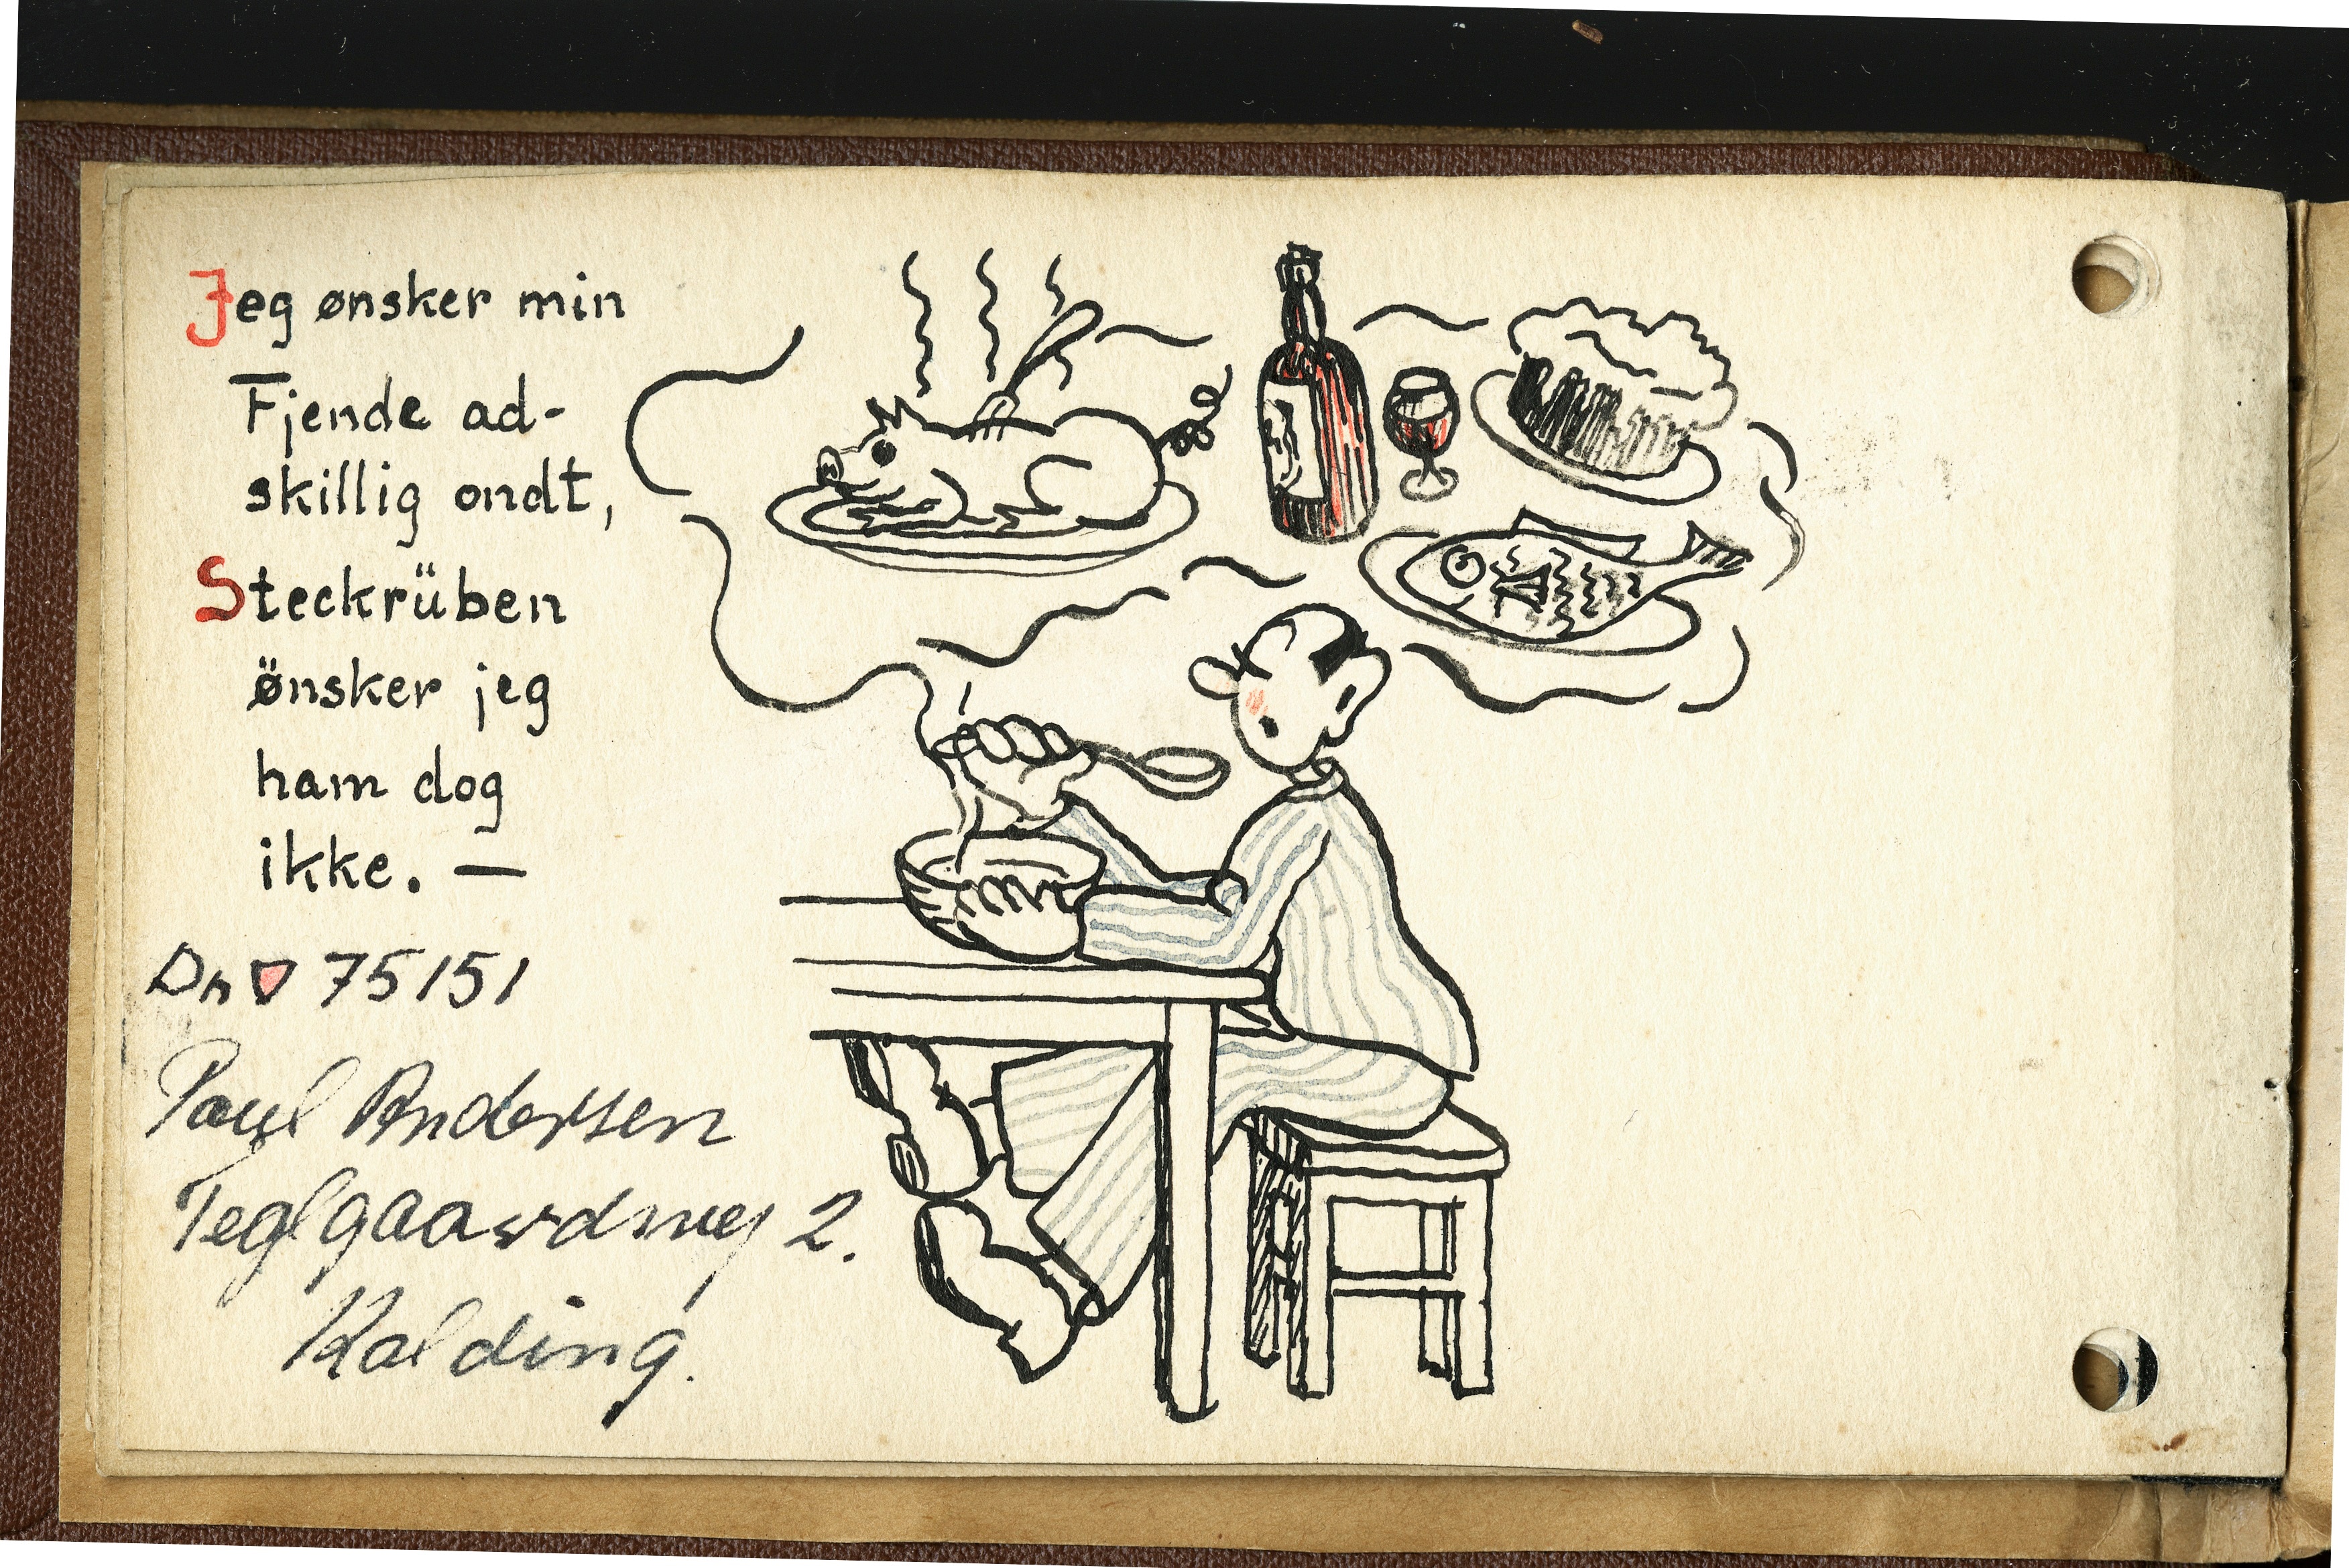 Jeg ønsker min
Fjende ad-
skillig ondt,
Steckrüben
ønsker jeg
ham dog
ikke. —
75151
Poul Andersen
Teglgaardsvej 2.
Kolding.